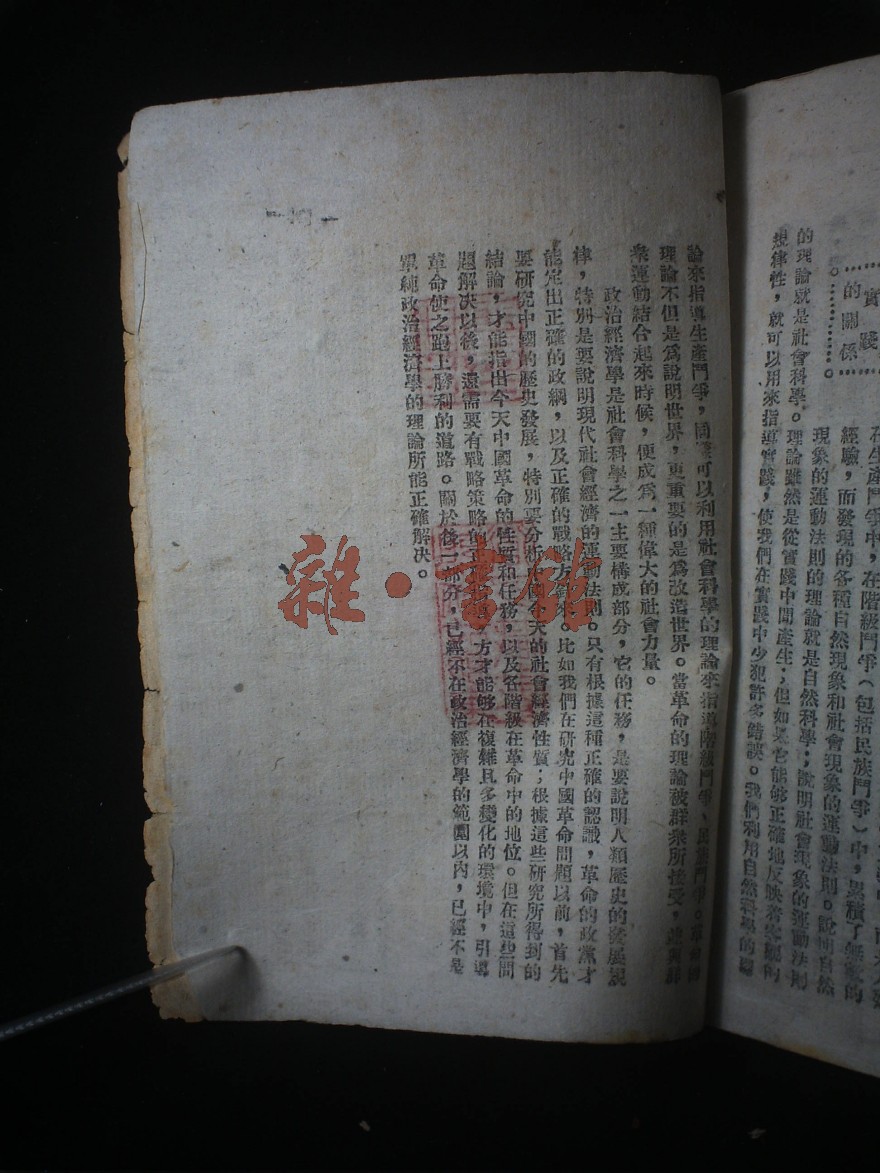 實踐
的關係
在生產鬥爭中，在階級鬥爭（包括民族鬥爭）中，累積了無數的
經驗，而發現的各種自然現象和社會現象的運動法則。說明自然
現象的運動法則的理論就是自然科學；說明社會現象的運動法則
的理論就是社會科學。理論雖然是從實踐中間產生；但如果它能够正確地反映着客觀的
規律性，就可以用來指導實踐，使我們在實踐中少犯許多錯誤。我們利用自然科學的理
論來指導生產鬥爭，同樣可以利用社會科學的理論來指導階級鬥爭、民族鬥爭。革命的
理論不但是爲說明世界，更重要的是爲改造世界。當革命的理論被群衆所接受，
衆運動結合起來時候，便成爲一種偉大的社會力量。
政治經濟學是社會科學之一主要構成部分，它的任務，是要說明人類歷史的發展規
律，特別是要說明現代社會經濟的運動法則。只有根據這種正確的認識，革命的政黨才
能定出正確的政綱，以及正確的戰略方針來。比如我們在研究中國革命問題以前，首先
要研究中國的歷史發展，特別要分析中國今天的社會經濟性質；根據這些研究所得到的
結論，才能指出今天中國革命的性質和任務，以及各階級在革命中的地位。但在這些問
題解決以後，還需要有戰略策略的正確指導，方才能够在複雜且多變化的環境中，引導
革命使之跑上勝利的道路。關於後二部分，已經不在政治經濟學的範圍以內，已經不是
單純政治經濟學的理論所能正確解決。
雜·書館